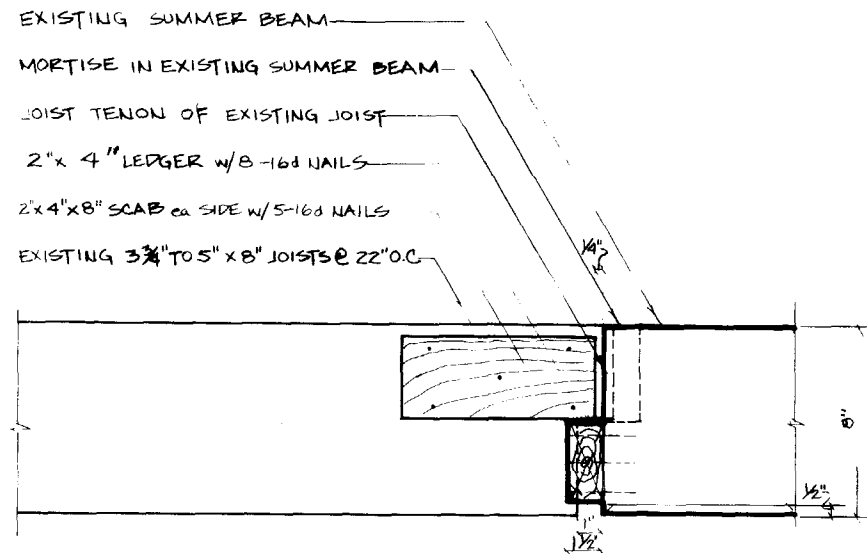 EXISTING SUMMER BEAM
MORTISE IN EXISTING SUMMER BEAM
JOIST TENON OF EXISTING JOIST
2"x 4" LEDGER w/8-16d NAILS
2"x4"x8" SCAB ea SIDE w/5-16d NAILS
EXISTING 3¾" TO 5" x 8" JOISTS @ 22" O.C
1/4"
8"
1/2"
1"
1/2"